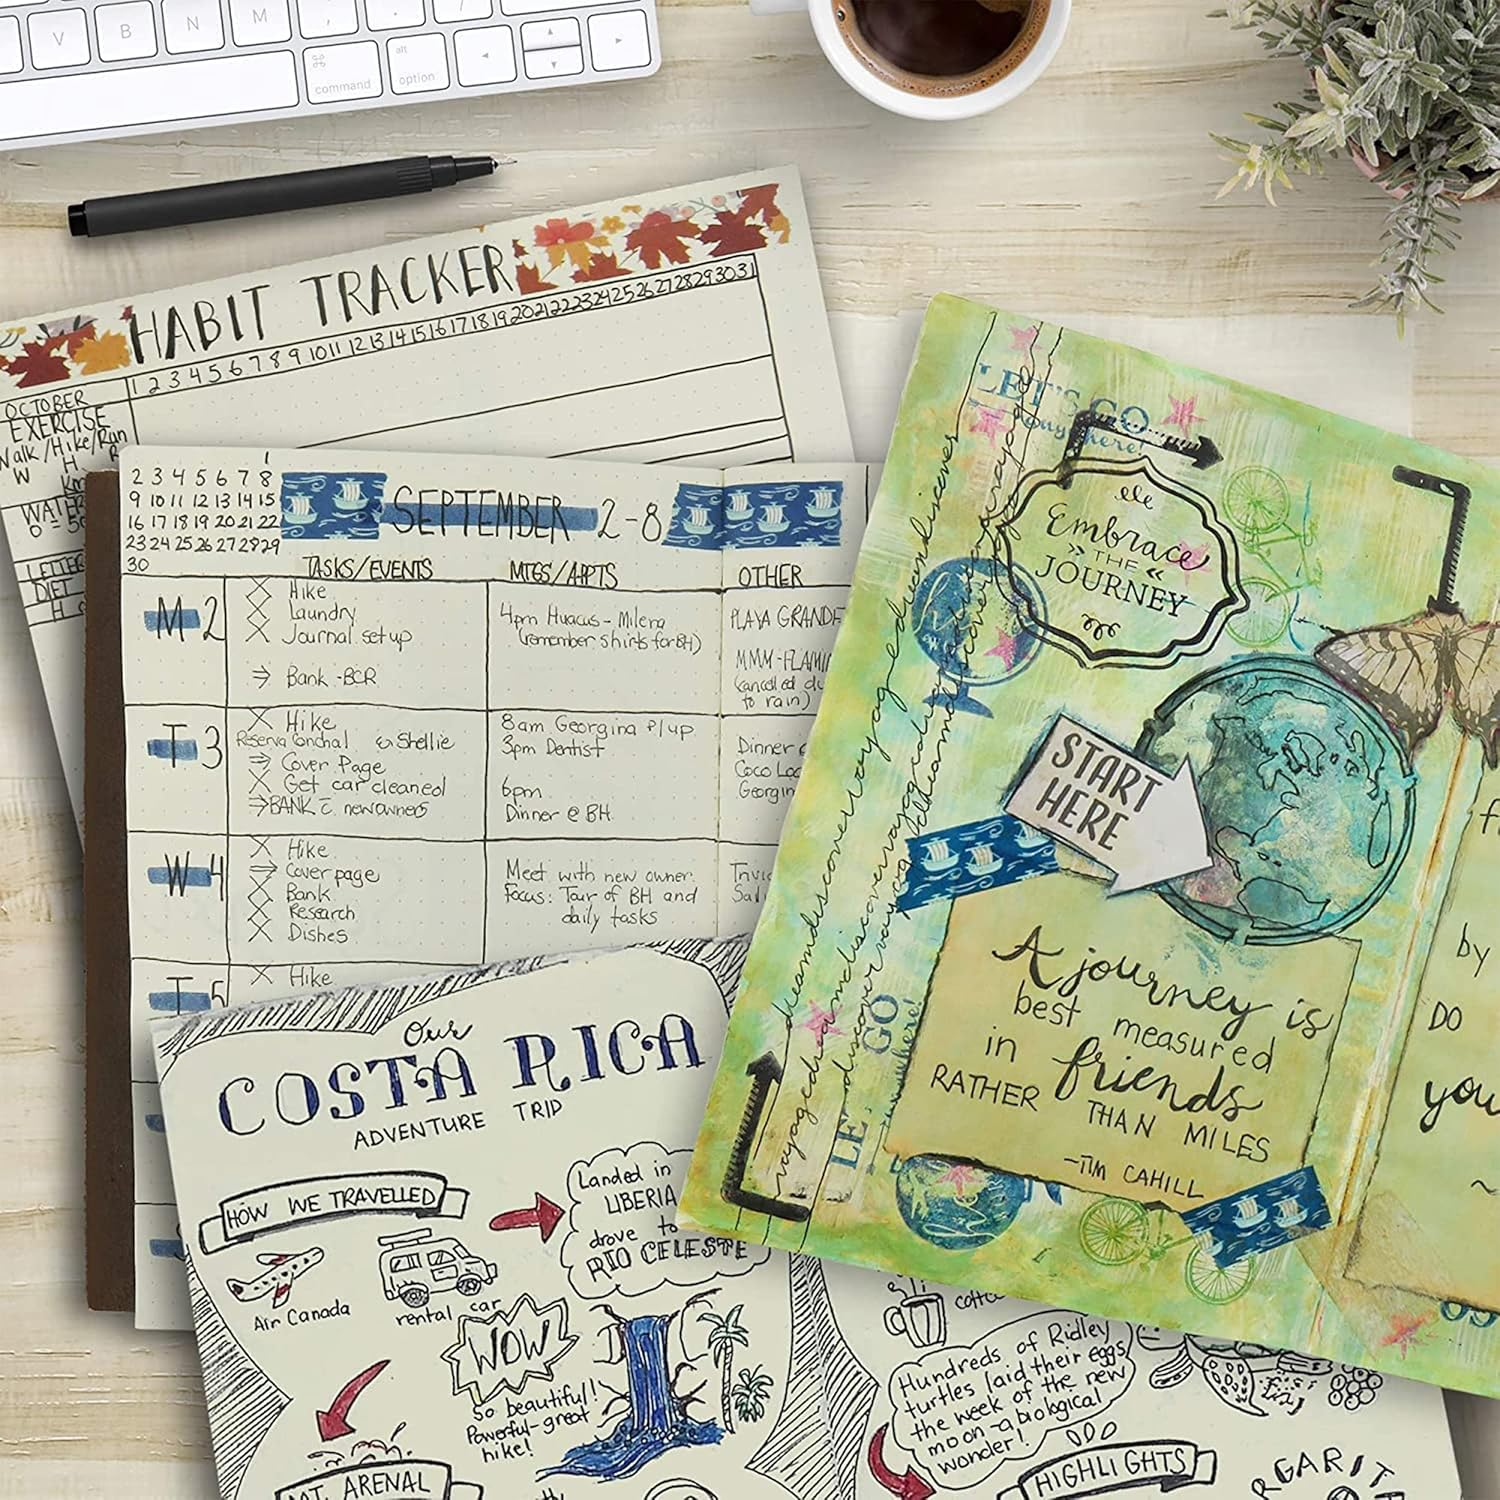 V B N M
command
alt
option
HABIT TRACKER
1 2 3 4 5 6 7 8 9 10 11 12 13 14 15 16 17 18 19 20 21 22 23 24 25 26 27 28 29 30 31
OCTOBER
EXERCISE
Walk/Hike/Run
W H
Km
WATER
LETTE
DIET
H
1
2 3 4 5 6 7 8
9 10 11 12 13 14 15
16 17 18 19 20 21 22
23 24 25 26 27 28 29
30
SEPTEMBER 2-8
TASKS/EVENTS MTGS/APPTS OTHER
M 2
X Hike
X Laundry
X Journal set up
⇒ Bank - BCR
4pm Huacas - Milena
(remember shirts for BH)
PLAYA GRANDE
MMM-FLAMI
(cancelled du
to rain)
T 3
X Hike
Reserva Conchal Shellie
⇒ Cover Page
X Get car cleaned
⇒ BANK newowners
8am Georgina P/up
3pm Dentist
6pm
Dinner @ BH
Dinner
Coco Loc
Georgin
W 4
X Hike
⇒ Cover page
X Bank
X Research
X Dishes
Meet with new owner
Focus: Tour of BH and
daily tasks
Trivi
Sal
T 5
X Hike
Our
COSTA RICA
ADVENTURE TRIP
HOW WE TRAVELLED
Air Canada
rental car
Landed in
LIBERIA
drove to
RIO CELESTE
WOW
So beautiful!
Powerful-great
hike!
MT. ARENAL
Hundreds of Ridley
turtles laid their eggs
the week of the new
moon - a biological
wonder!
HIGHLIGHTS
RGARIT
LET'S GO
anywhere!
Embrace
» THE «
JOURNEY
START
HERE
A journey is
best measured
in friends
RATHER THAN MILES
-TIM CAHILL
LET'S GO
anywhere!
by
DO
you